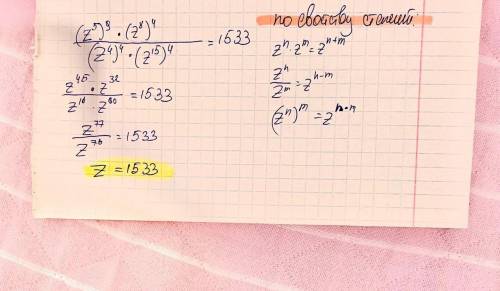 (z⁵)⁹·(z⁸)⁴ / (z⁴)⁴·(z¹⁵)⁴ = 1533
z⁴⁵·z³² / z¹⁶·z⁶⁰ = 1533
z⁷⁷ / z⁷⁶ = 1533
z = 1533
по свойству степеней:
zⁿ·zᵐ = zⁿ⁺ᵐ
zⁿ / zᵐ = zⁿ⁻ᵐ
(zⁿ)ᵐ = zⁿ·ᵐ